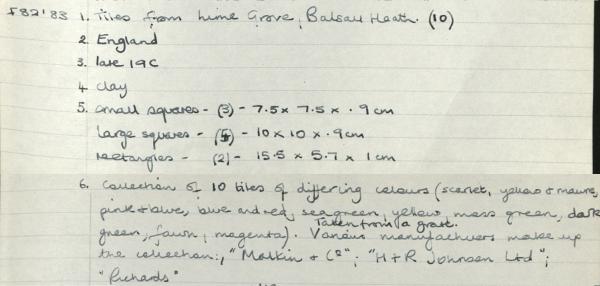 F82'83 1. Tiles from Lime Grove, Balsall Heath. (10)
2. England
3. late 19C
4 clay
5. small squares - (3) - 7.5 x 7.5 x .9 cm
large squares - (5) - 10 x 10 x .9cm
rectangles - (2) - 15.5 x 5.7 x 1cm
6. Collection of 10 tiles of differing colours (scarlet, yellow & mauve,
pink & blue, blue and red, sea green, yellow, moss green, dark
green, fawn, magenta). Taken from a grate. Various manufacturers make up
the collection:, "Malkin & Co"; "H & R Johnson Ltd";
"Richards"